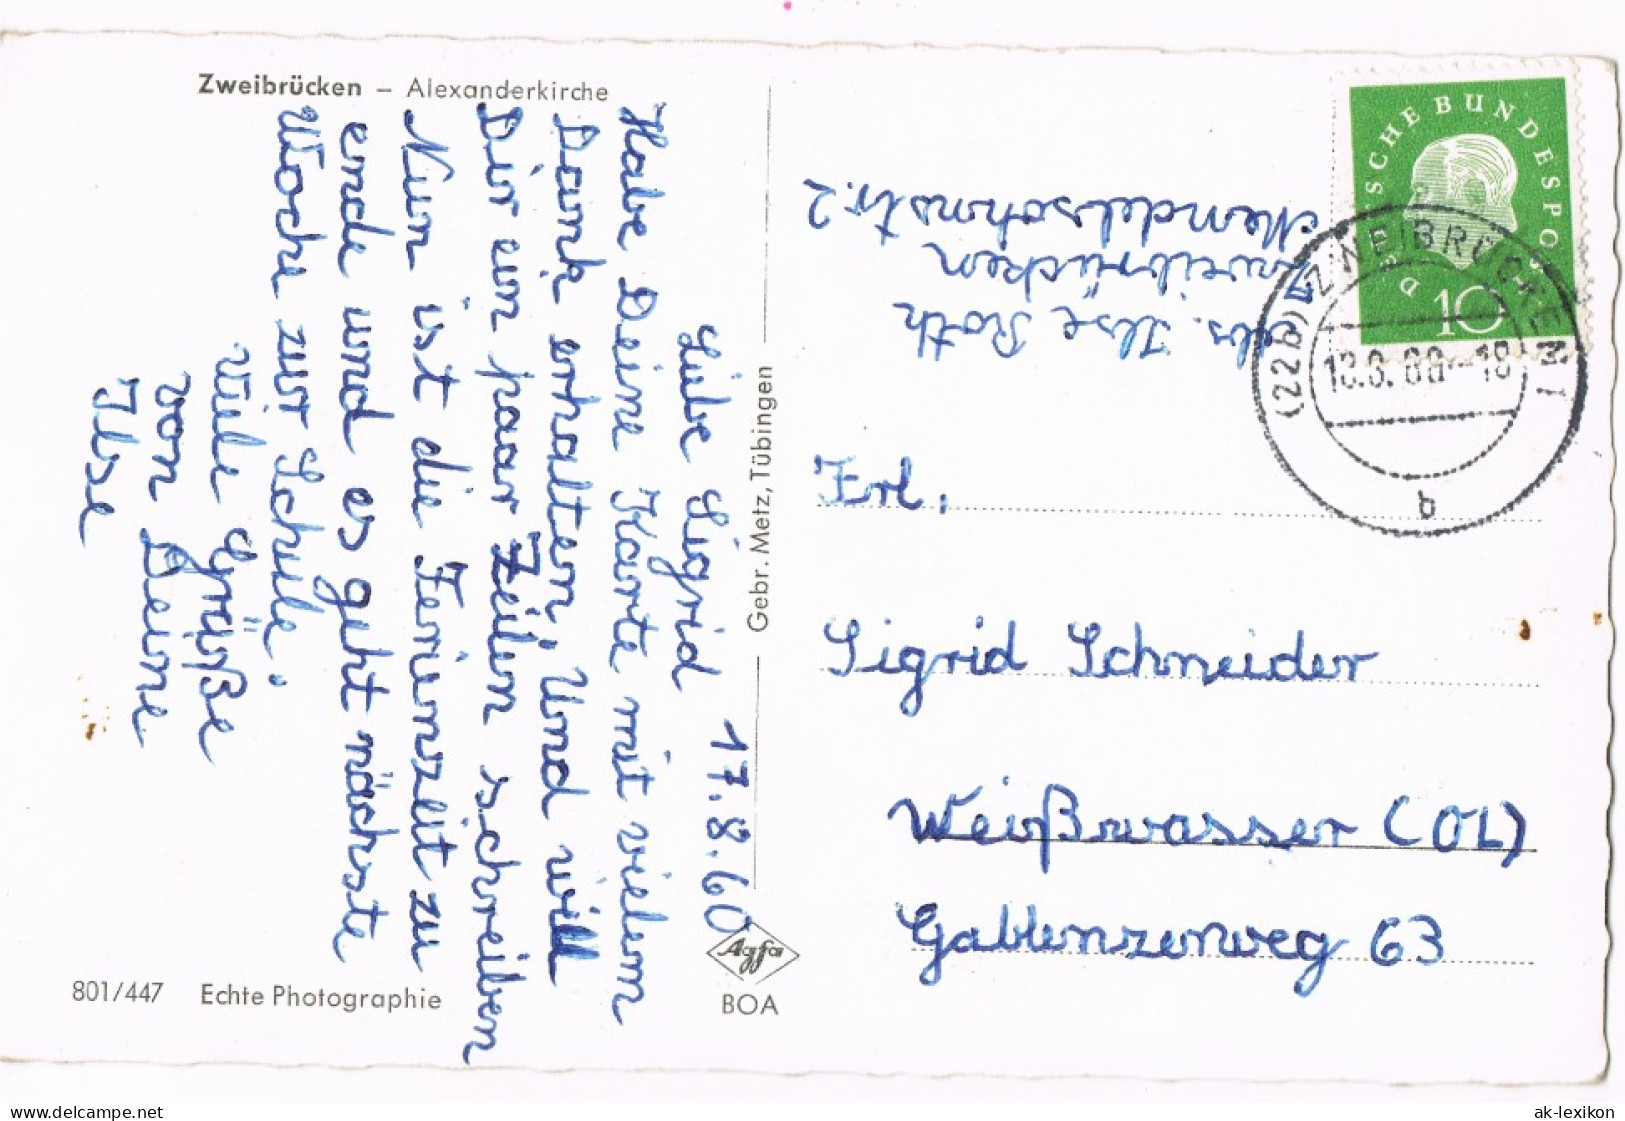 Zweibrücken – Alexanderkirche
17.8.60
Liebe Sigrid
Habe Deine Karte mit vielem
Dank erhalten. Und will
Dir ein paar Zeilen schreiben
Nun ist die Ferienzeit zu
ende und es geht nächste
Woche zur Schule.
Viele Grüße
von Deine
Ilse
801/447 Echte Photographie
Gebr. Metz, Tübingen
Agfa
BOA
Abs. Ilse Roth
Zweibrücken
Mendelsohnstr. 2
DEUTSCHE BUNDESPOST
10
(22b) ZWEIBRÜCKEN 1
-18
b
Frl.
Sigrid Schneider
Weißwasser (OL)
Gablenzerweg 63
www.akpool.de
ak-lexikon